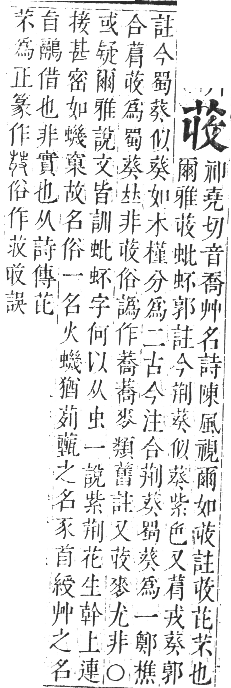 荍
祁堯切音喬艸名詩陳風視爾如荍註荍芘芣也
爾雅荍蚍衃郭註今荆葵似葵紫色又菺戎葵郭
註今蜀葵似葵如木槿分爲二古今注合荆葵蜀葵爲一鄭樵
合菺荍爲蜀葵𠀤非荍俗譌作蕎蕎麥類舊註又荍麥尤非○
或疑爾雅說文皆訓蚍衃字何以从虫一說紫荆花生幹上連
接甚密如蟣窠故名俗一名火蟣猶茢甄之名豕首綬艸之名
旨鷊借也非實也从詩傳芘
芣爲正篆作俗作誤